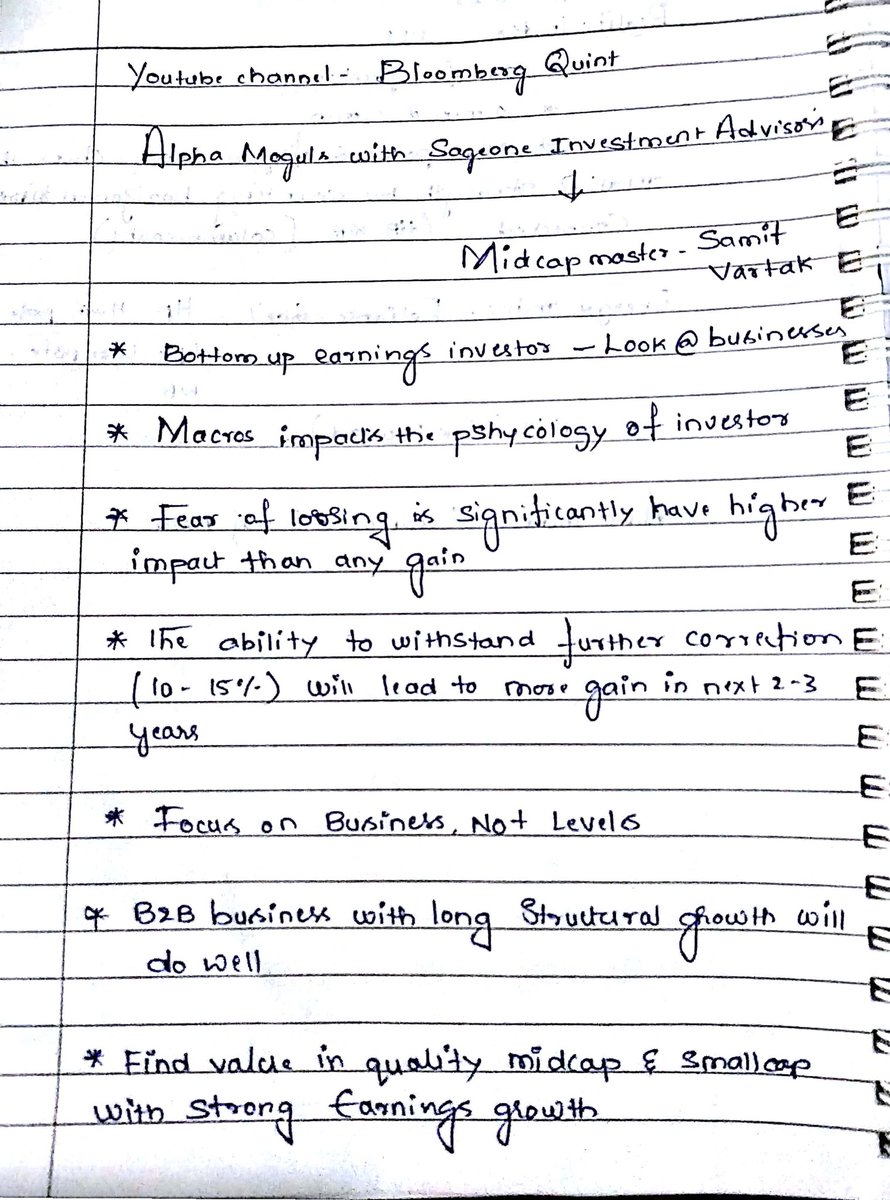 Youtube channel - Bloomberg Quint
Alpha Moguls with Sageone Investment Advisors
↓
Midcap master - Samit
Vartak
* Bottom up earnings investor - Look @ businesses
* Macros impacts the pshycology of investor
* Fear of loosing is significantly have higher
impact than any gain
* The ability to withstand further correction
(10 - 15%) will lead to more gain in next 2-3
years
* Focus on Business, Not Levels
* B2B business with long Structural growth will
do well
* Find value in quality midcap & smallcap
with Strong Earnings growth